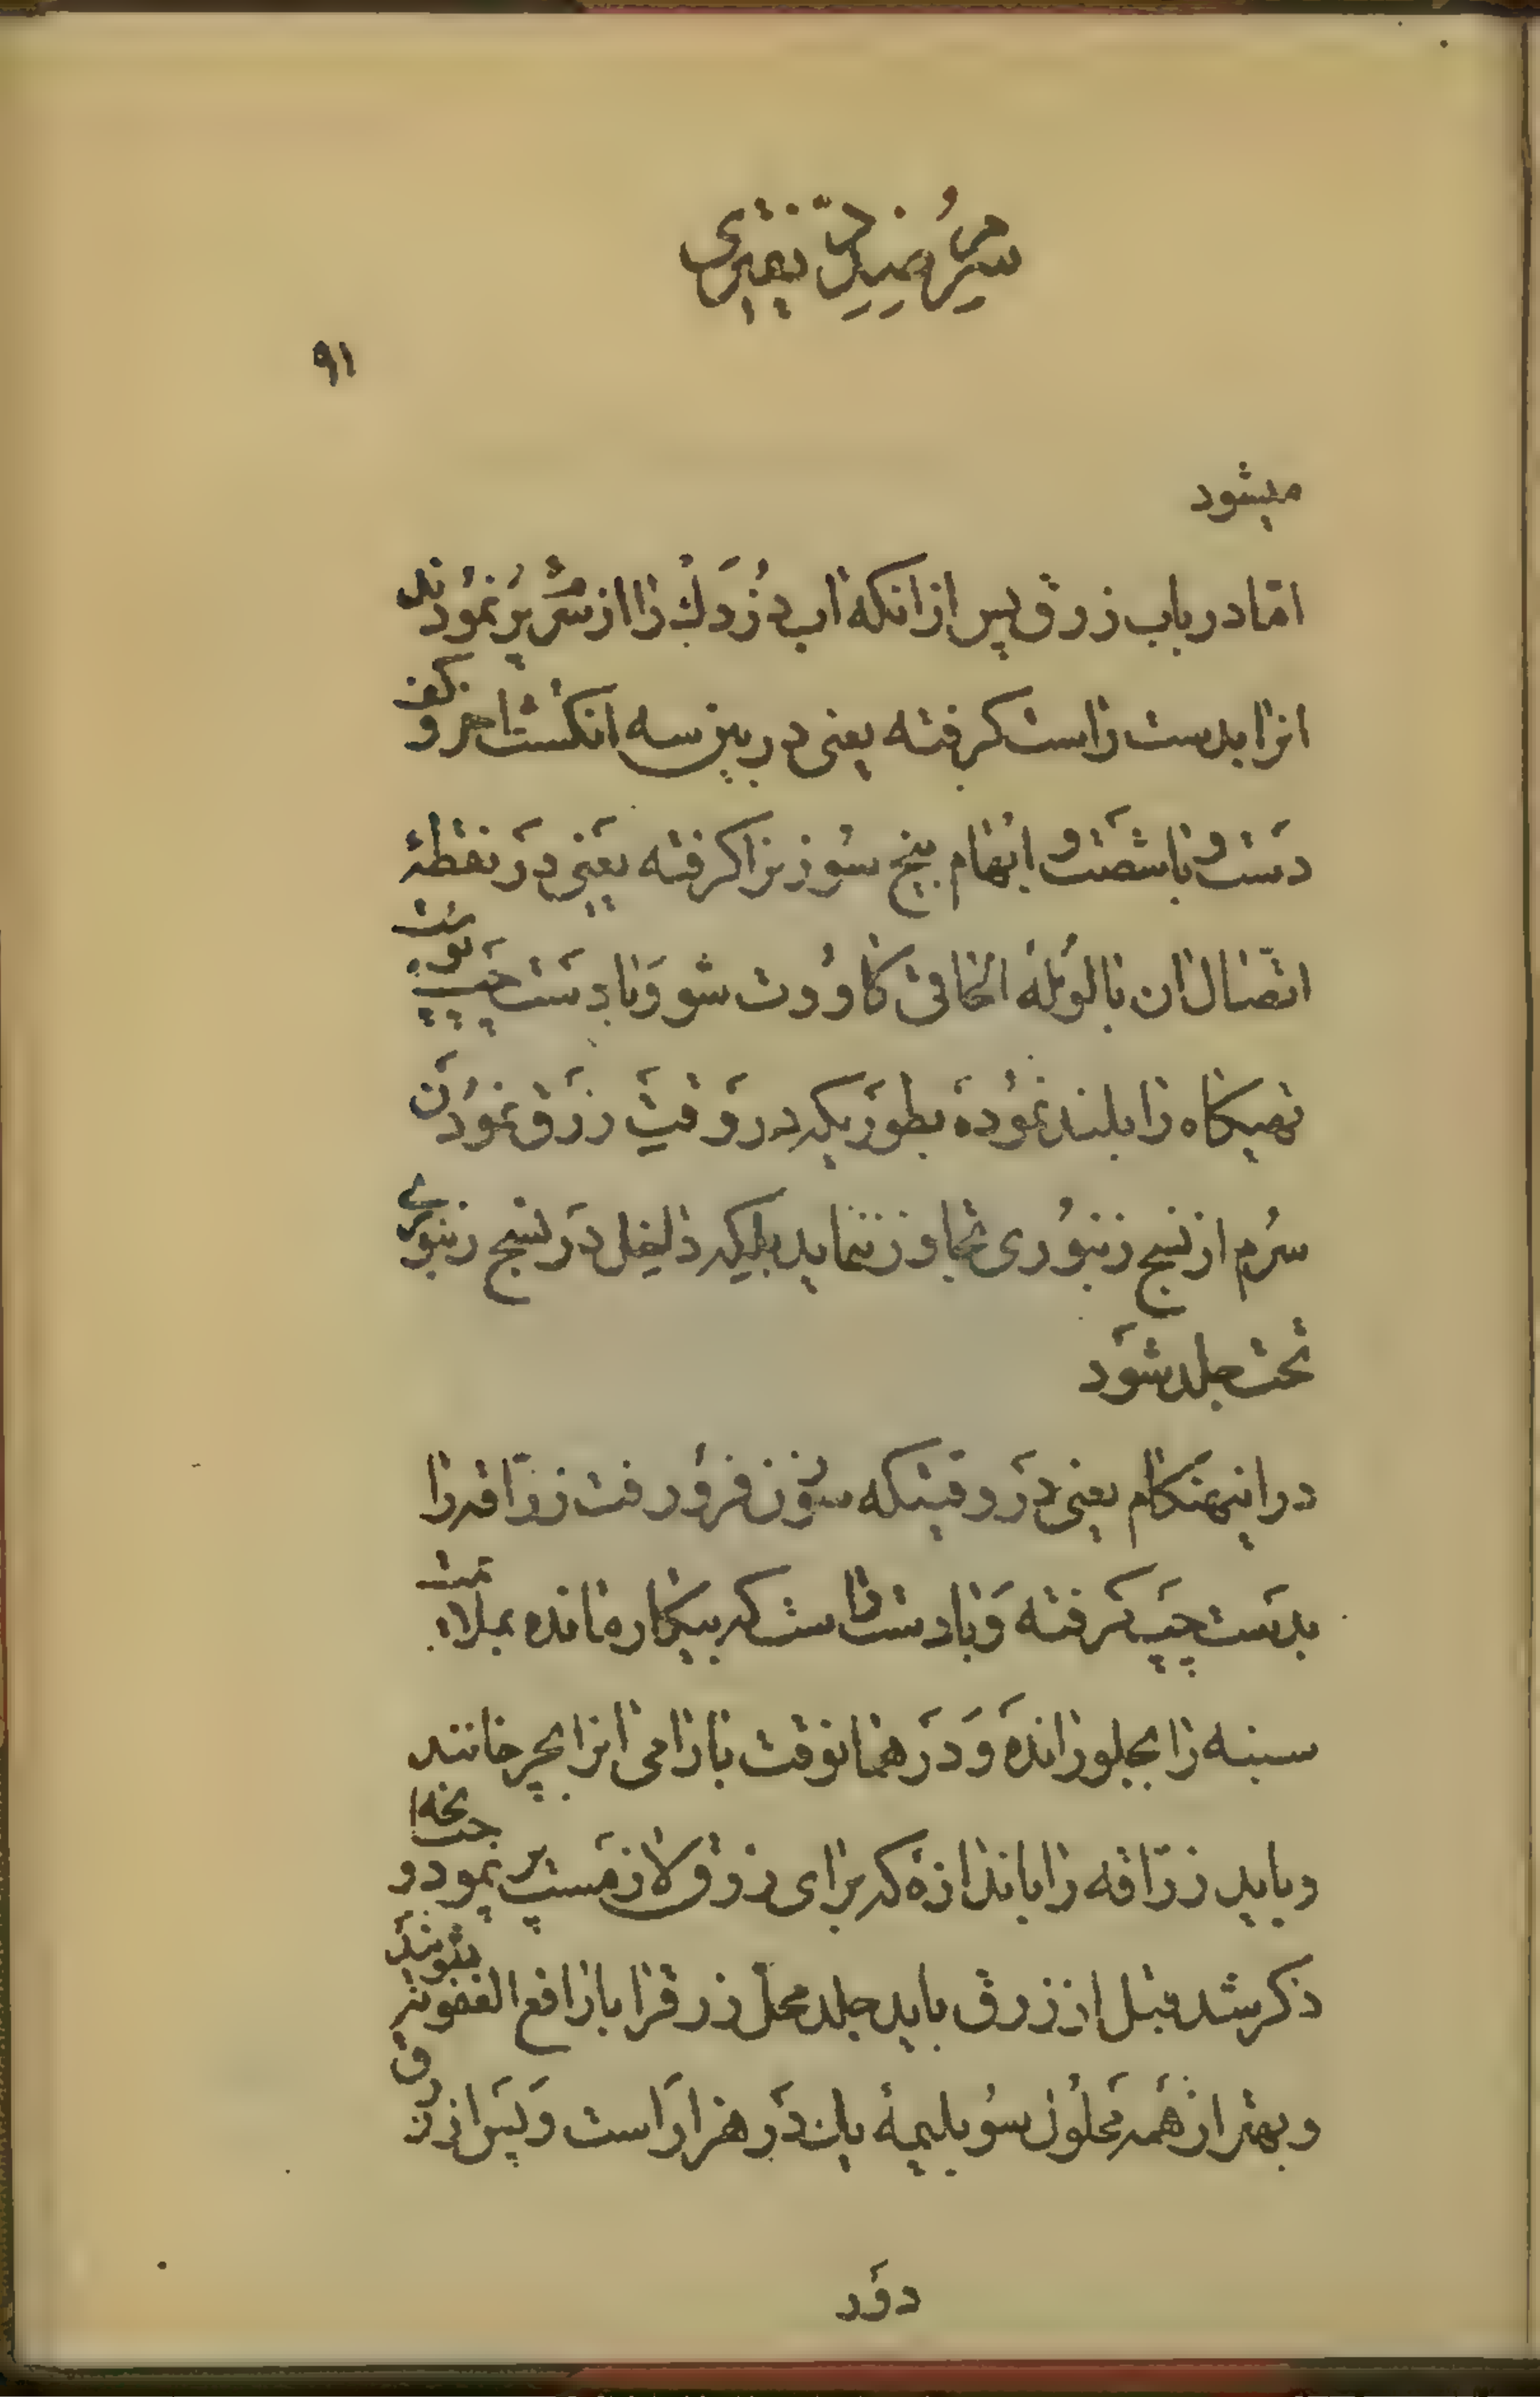 سرم ضد دیفتری
۹۱
میشود
امّا در باب زرق پس از انکه اب دُزدَكْ را از سرم پر نمودند
انرا بدست راست کرفته یعنی در بین سه انکشت اخر و کف
دست و با شصت و ابهام بیخ سوزنرا کرفته یعنی در نقطهٔ
اتّصال ان با لولهٔ الحاقی کاوُدت شو و با دست چپ پوست
تهیکاه را بلند نموده بطوریکه در وقتِ زرق نمودن
سرُم از نسج زنبوری تجاوز ننماید بلکه داخل در نسج زنبوری
تحت جلد شود
در اینهنکام یعنی در وقتیکه سوزن فرو رفت زرّاقه را
بدست چپ کرفته و با دست راست که بیکار مانده بملایمت
سنبه را بجلو رانده و در همانوقت بارامی انرا بچرخانند
و باید زرّاقه را باندازهٔ که برای زرق لازمست پر نمود و چنانچه
ذکر شد قبل از زرق باید جلد محل زرقرا با رافع العفونه بشویند
و بهتر از همه محلول سوبلیمهٔ یك در هزار است و پس از زرق
دوَد